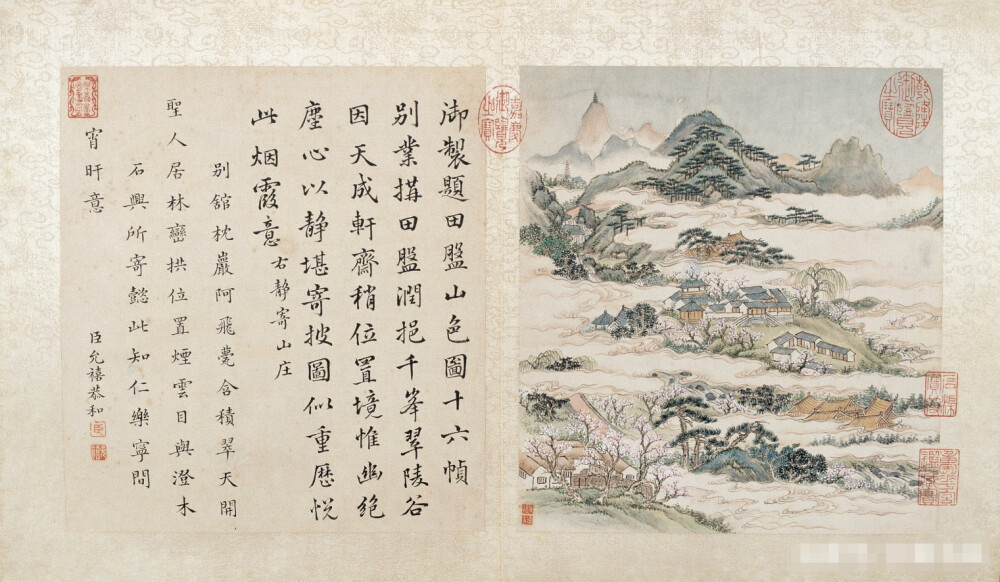 乾隆御覽之寶
嘉慶御覽之寶
御製題田盤山色圖十六幀
别業搆田盤潤挹千峯翠陵谷
因天成軒齋稍位置境惟幽絶
塵心以静堪寄披圖似重歷悦
此烟霞意右静寄山庄
别舘枕巖阿飛甍含積翠天開
聖人居林巒拱位置煙雲目與澄木
石興所寄懿此知仁樂寧問
宵旰意
臣允禧恭和